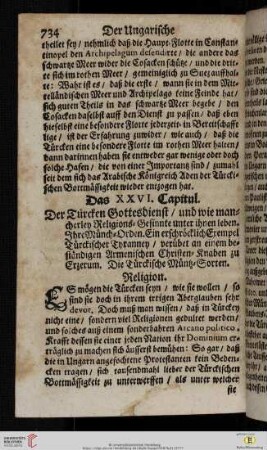 734 Der Ungarische
theilet sey / nehmlich daß die Haupt-Flotte in Constan-
tinopel den Archipelagum defendirte / die andere das
schwartze Meer wider die Cosacken schütze / und die drit-
te sich im rothen Meer / gemeiniglich zu Suez auffhal-
te: Wahr ist es / daß die erste / wann sie in dem Mit-
telländischen Meer und Archipelago keine Feinde hat /
sich guten Theils in das schwartze Meer begebe / den
Cosacken daselbst auff den Dienst zu passen / daß aber
hieselbst eine besondere Flotte jederzeit in Bereitschafft
lige / ist der Erfahrung zuwider / wie auch / daß die
Türcken eine besondere Flotte im rothen Meer halten /
dann darinnen haben sie entweder gar wenige oder doch
solche Hafen / die von einer Importanz sind / zumahl
seit dem sich das Arabische Königreich Aden der Türcki-
schen Bottmässigkeit wieder entzogen hat.
Das XXVI. Capitul.
Der Türcken Gottesdienst / und wie man-
cherley Religions-Gesinnte unter ihnen leben.
Ihre Münch-Orden. Ein erschröcklich Exempel
Türckischer Tyranney / verübet an einem be-
ständigen Armenischen Christen-Knaben zu
Erzerum. Die Türckische Müntz-Sorten.
Religion.
Es mögen die Türcken seyn / wie sie wollen / so
sind sie doch in ihrem irrigen Aberglauben sehr
devot. Doch muß man wissen / daß in Türckey
nicht eine / sondern viel Religionen geduldet werden /
und solches auß einem sonderbahren Arcano politico,
Krafft dessen sie einer jeden Nation ihr Dominium er-
träglich zu machen sich äusserst bemühen: So gar / daß
die in Ungarn angefochtene Protestanten kein Beden-
cken tragen / sich tausendmahl lieber der Türckischen
Bottmässigkeit zu unterwerffen / als unter welcher
sie